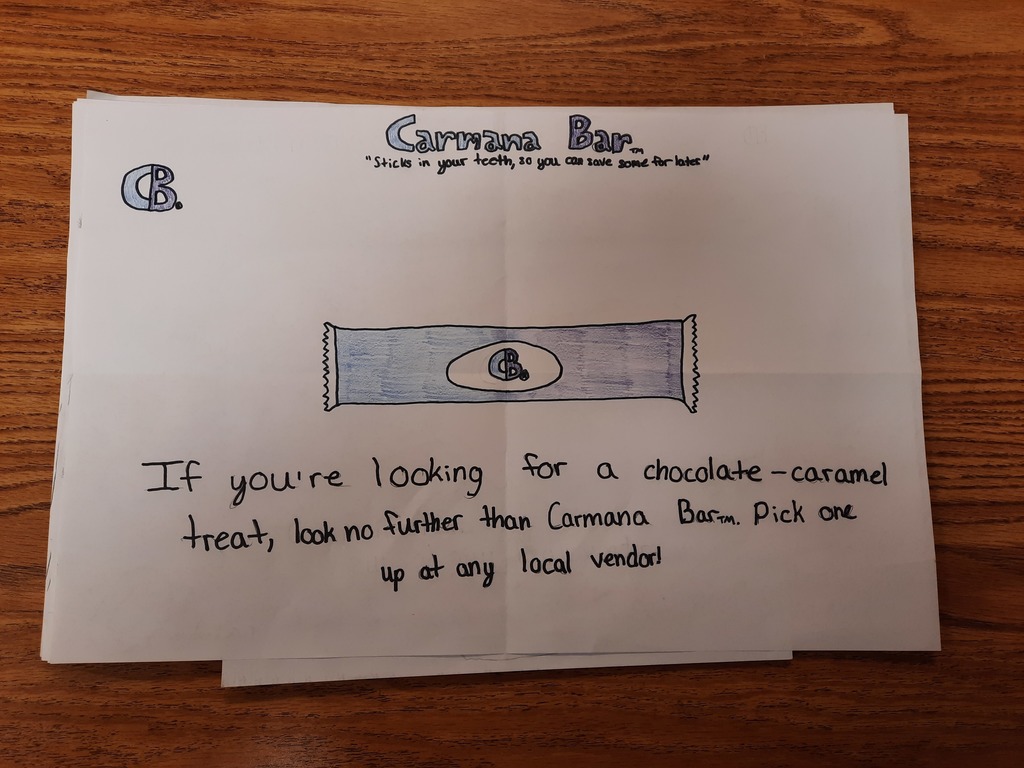 Carmana Bar™
"Sticks in your teeth, so you can save some for later"
CB.
CB®
If you're looking for a chocolate-caramel
treat, look no further than Carmana Bar™. Pick one
up at any local vendor!